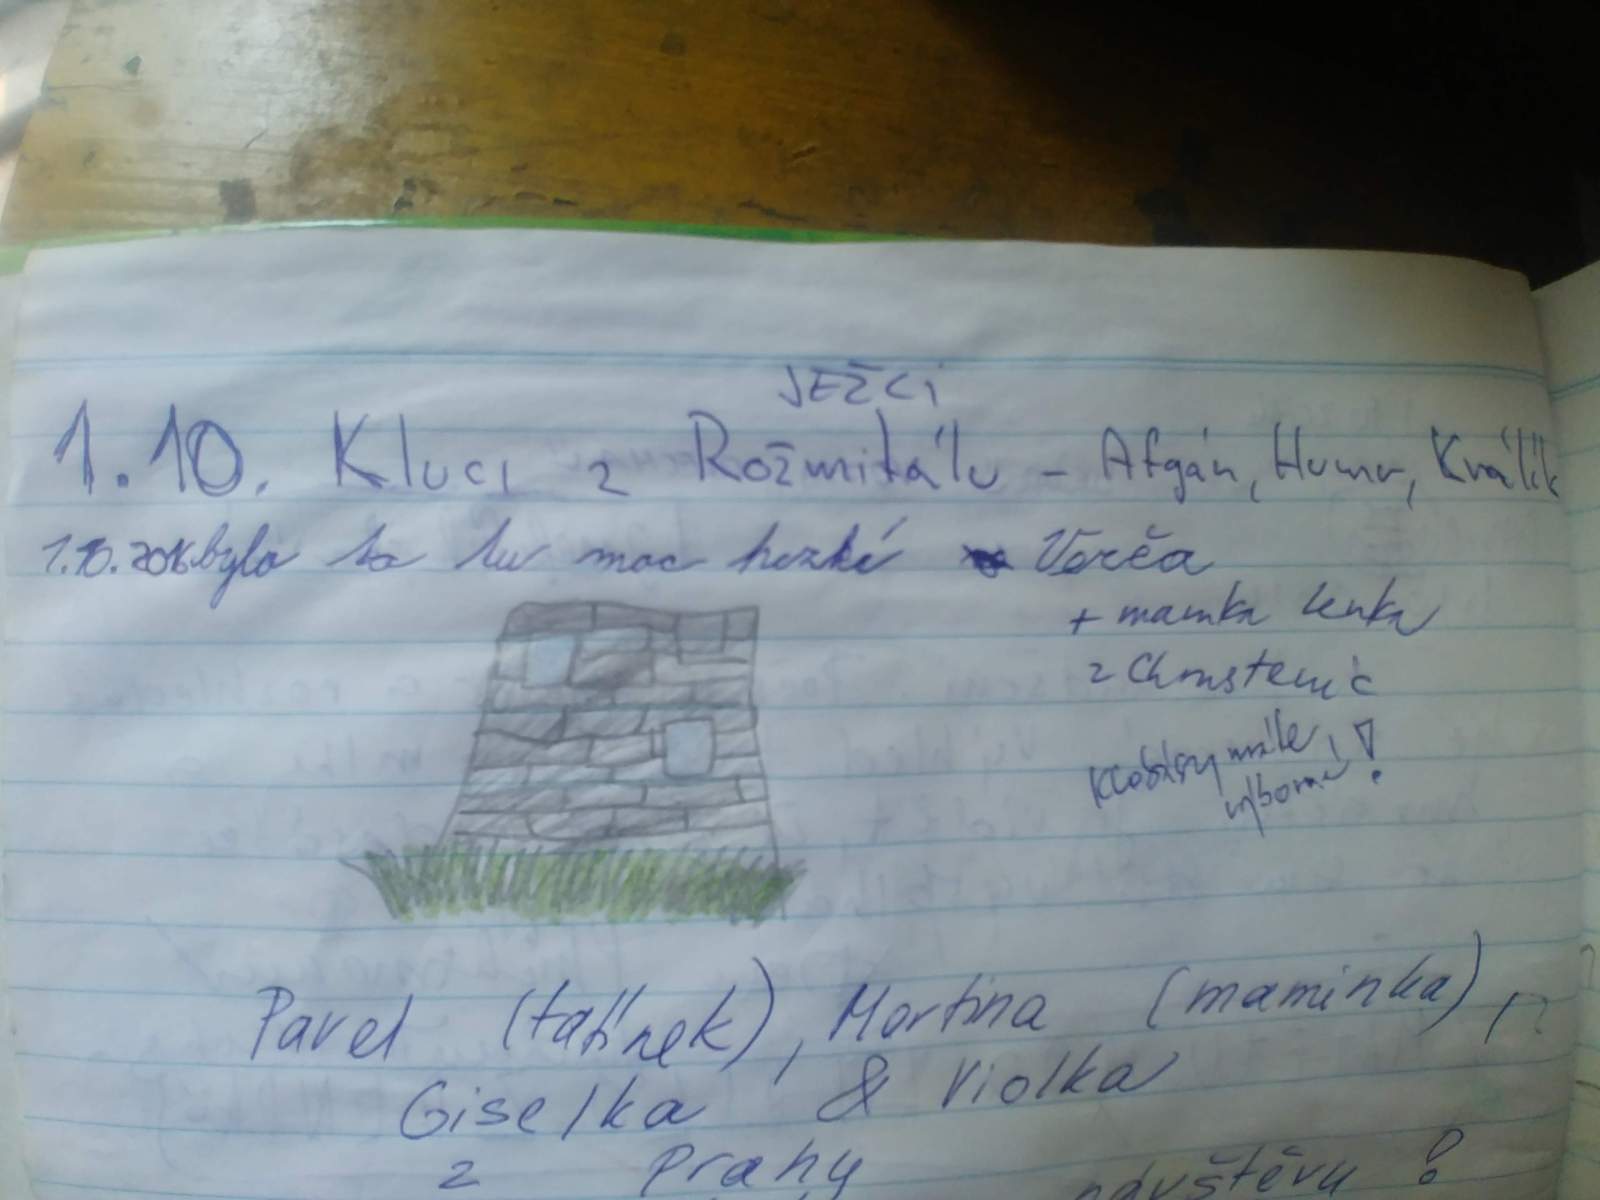 JEŽCI
1.10. Kluci z Rožmitálu - Afgán, Humr, Králík
1.10.2016 bylo to tu moc hezké Verča
+ mamka Lenka
z Chrustenic
Klobásy máte
výborné!
Pavel (tatínek), Martina (maminka),
Giselka & Violka
z Prahy návštěvu!